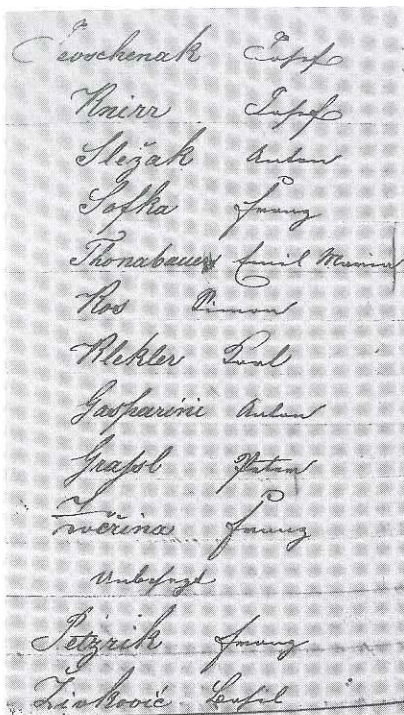 Knirr Josef
Sležak Anton
Sofka Franz
Thonabauer Emil Maria
Ros Simon
Klekler Paul
Gasparini Anton
Graßl Peter
Zwěrina Franz
Unbesezt
Petzrik Franz
Živković